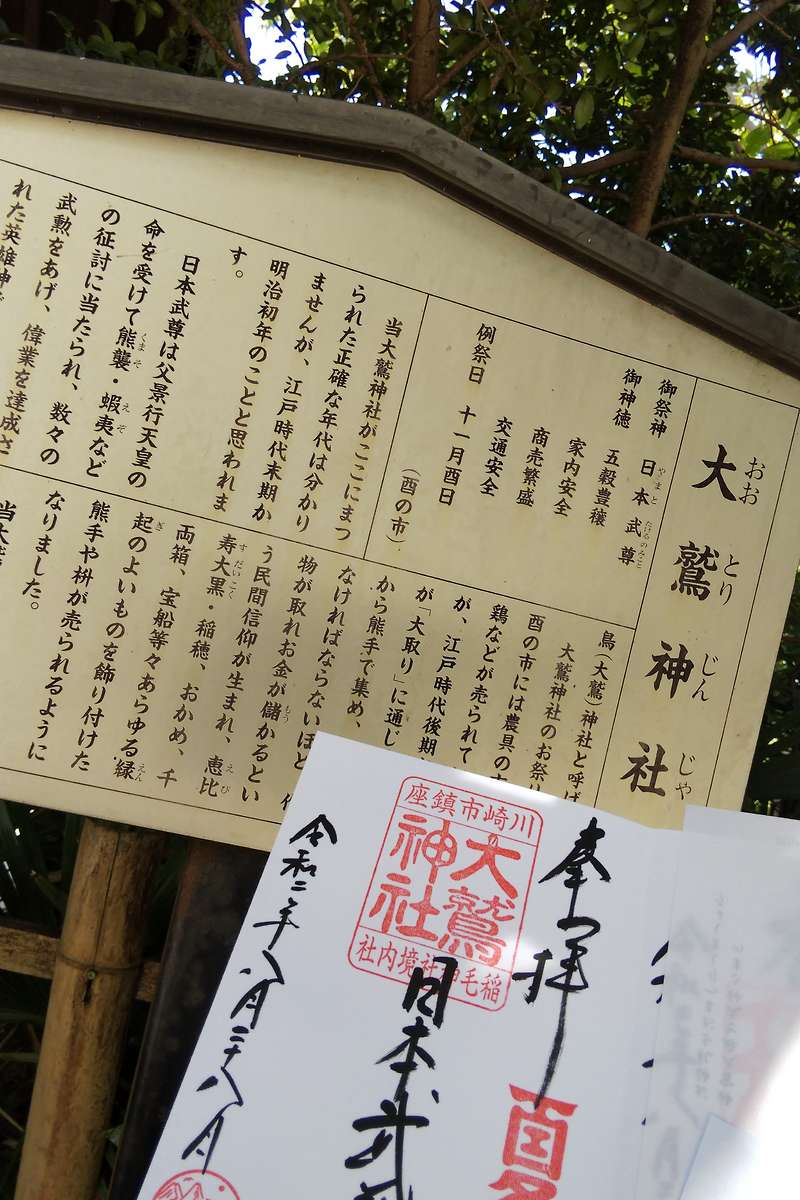 大鷲神社
おお とり じん じゃ
御祭神 日本武尊
やまと たけるのみこと
御神徳 五穀豊穣
家内安全
商売繁盛
交通安全
例祭日 十一月酉日
(酉の市)
当大鷲神社がここにまつ
られた正確な年代は分かり
ませんが、江戸時代末期か
明治初年のことと思われま
す。
日本武尊は父景行天皇の
命を受けて熊襲・蝦夷など
くまそ えぞ
の征討に当たられ、数々の
武勲をあげ、偉業を達成さ
れた英雄神
鳥(大鷲)神社と呼ば
大鷲神社のお祭り
酉の市には農具の
鶏などが売られて
が、江戸時代後期、
が「大取り」に通じ
から熊手で集め、
なければならないほど
物が取れお金が儲かるとい
もう
う民間信仰が生まれ、恵比
えび
寿大黒・稲穂、おかめ、千
すだいこく
両箱、宝船等々あらゆる縁
えん
起のよいものを飾り付けた
ぎ
熊手や枡が売られるように
なりました。
当大
奉拝
川崎市鎮座
大鷲神社
稲毛神社境内社
日本武
令和二年八月二十八日